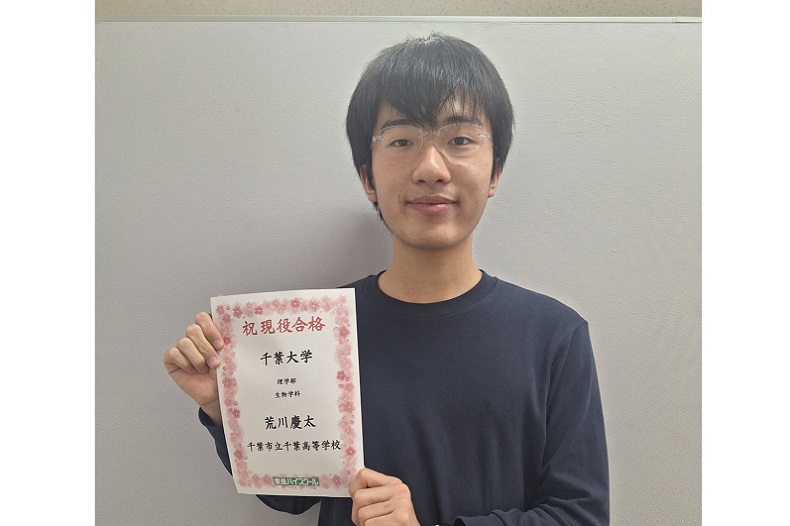 祝現役合格
千葉大学
理学部
生物学科
荒川慶太
千葉市立千葉高等学校
東進ハイスクール